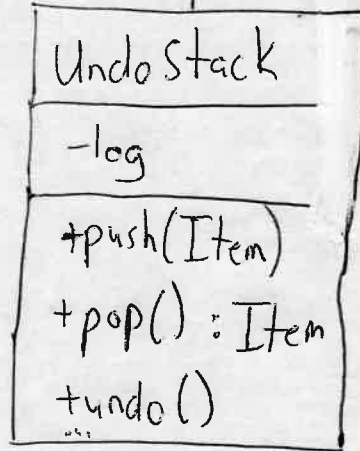 UndoStack
-log
+push(Item)
+pop() : Item
+undo()
...